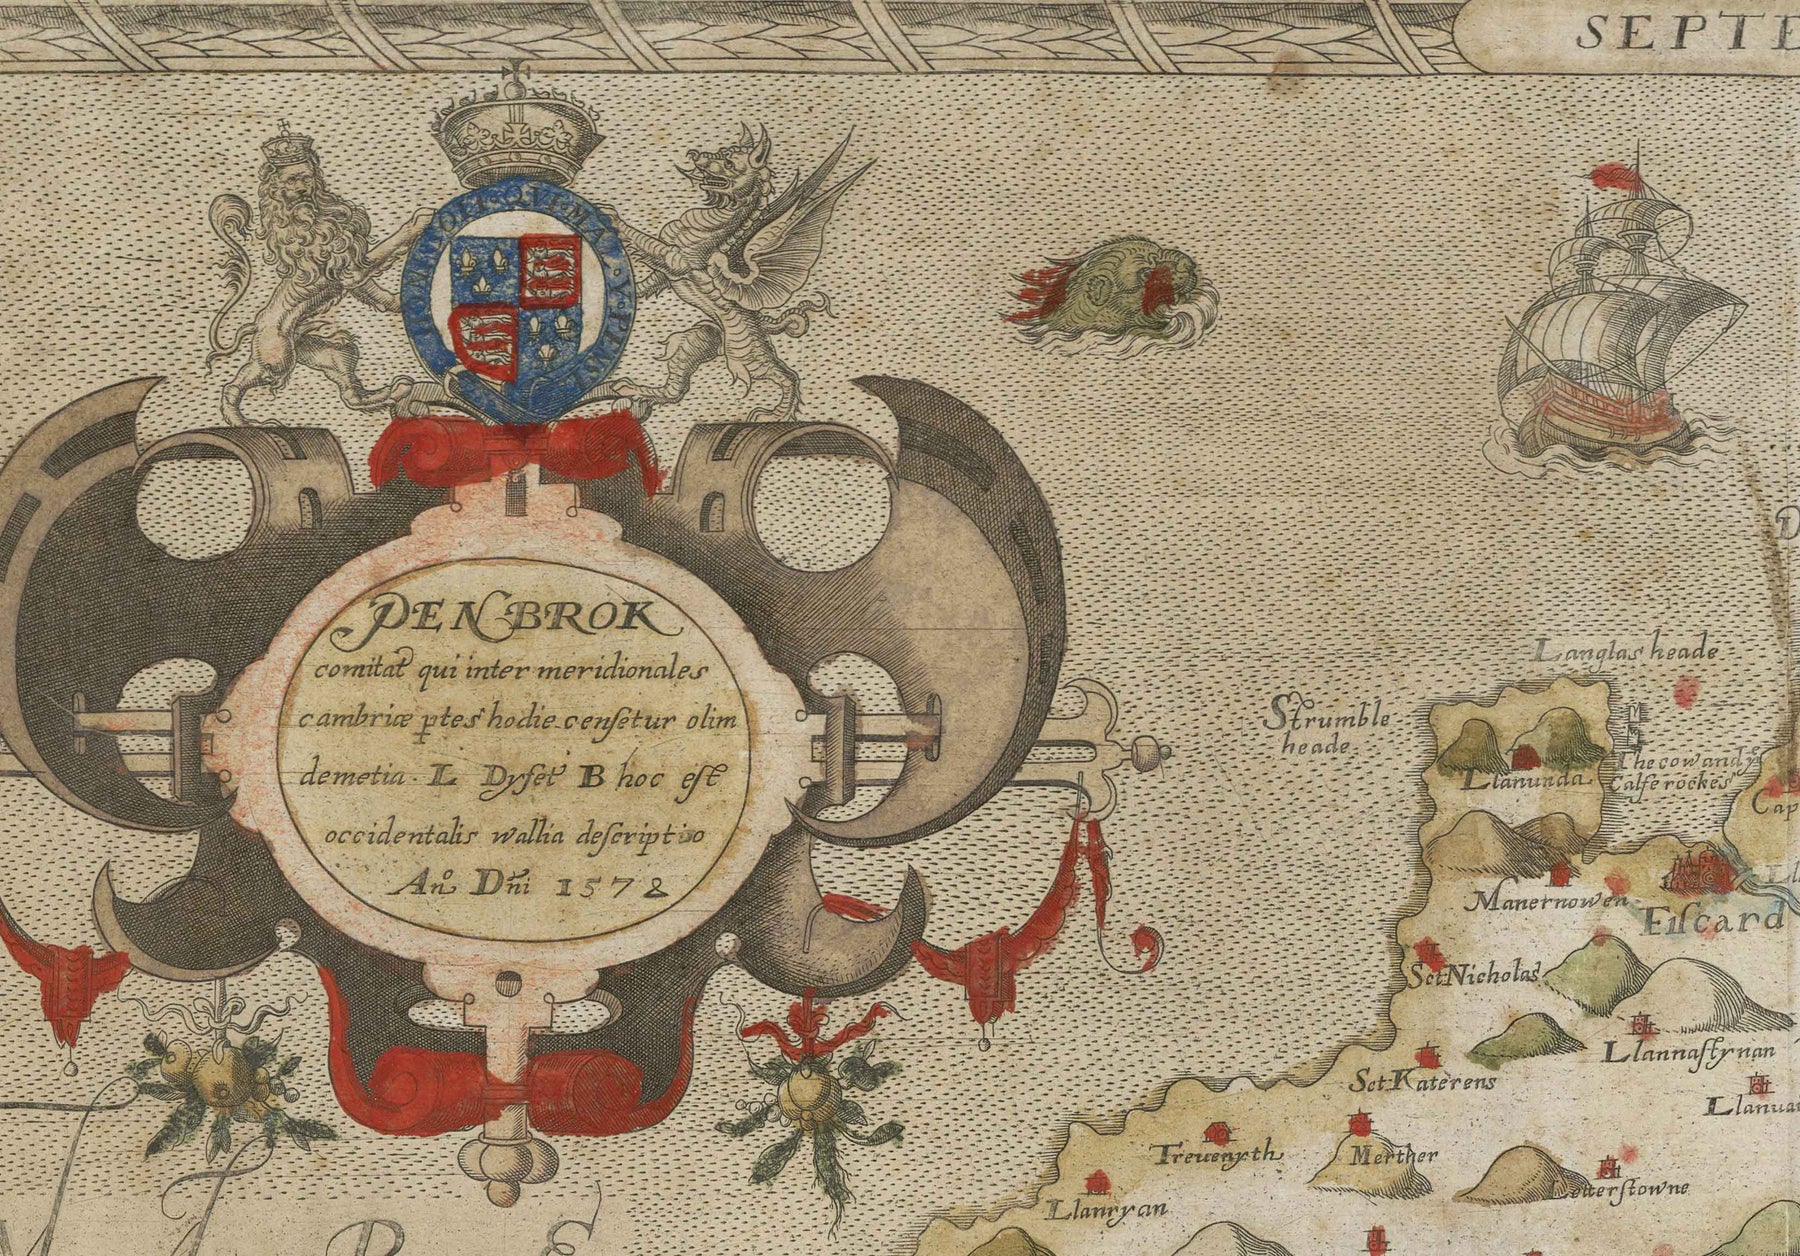 SEPTE
HONI SOIT QVI MAL Y PENSE
PENBROK
comitat᷒ qui inter meridionales
cambriæ ꝑtes hodie censetur olim
demetia . L Dyfet B hoc est
occidentalis wallia descriptio
Ano Dñi 1578
Langlas heade
Strumble
heade
Llanunda
The cow and ye
Calfe rockes
Cap
Manernowen
Fiscard
Sct Nicholas
Llannastynan
Sct Katerens
Llanuar
Treuenyth
Merther
Letterstowne
Llanryan